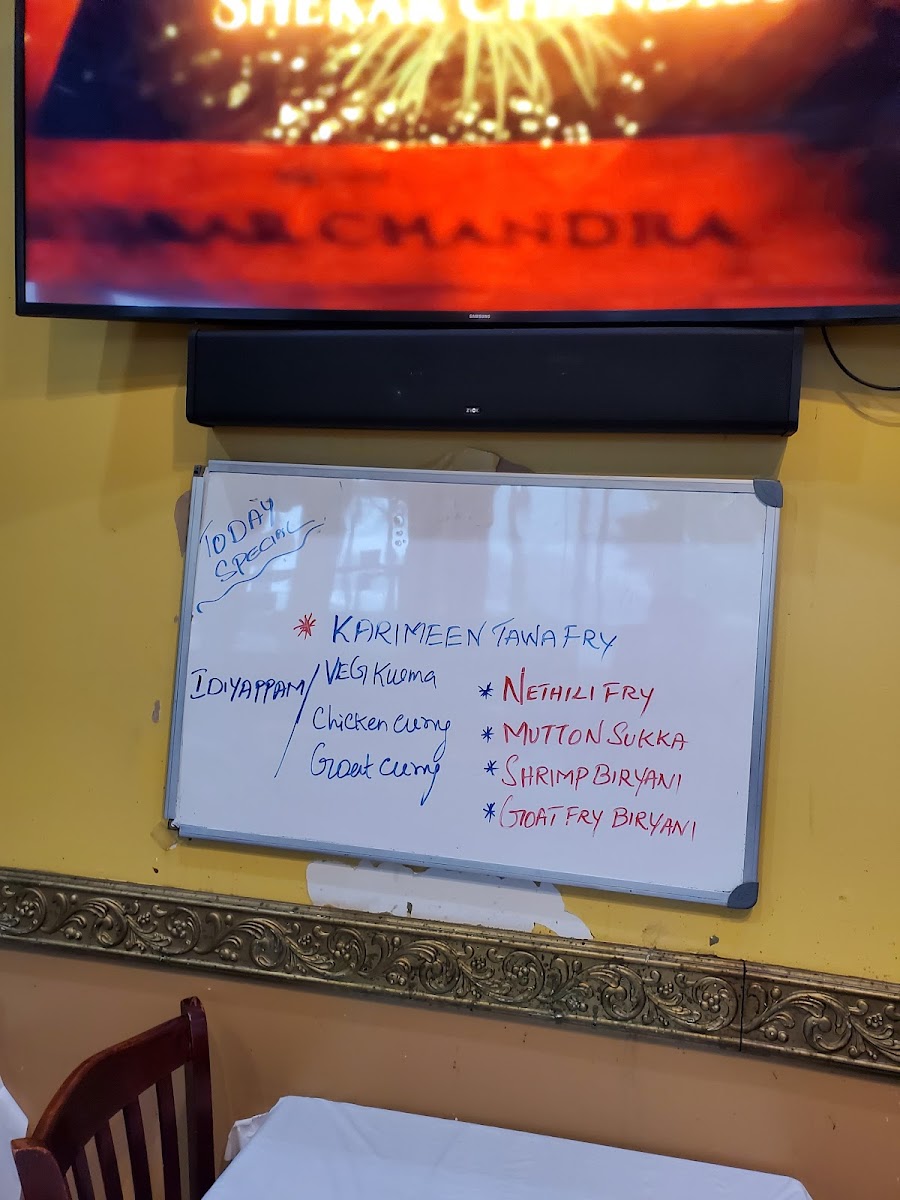 SHEKAR CHANDRA
CHANDRA
SAMSUNG
TODAY
SPECIAL
* KARIMEEN TAWA FRY
IDIYAPPAM / VEG Kurma
Chicken curry
Goat curry
* NETHILI FRY
* MUTTON SUKKA
* SHRIMP BIRYANI
* GOAT FRY BIRYANI